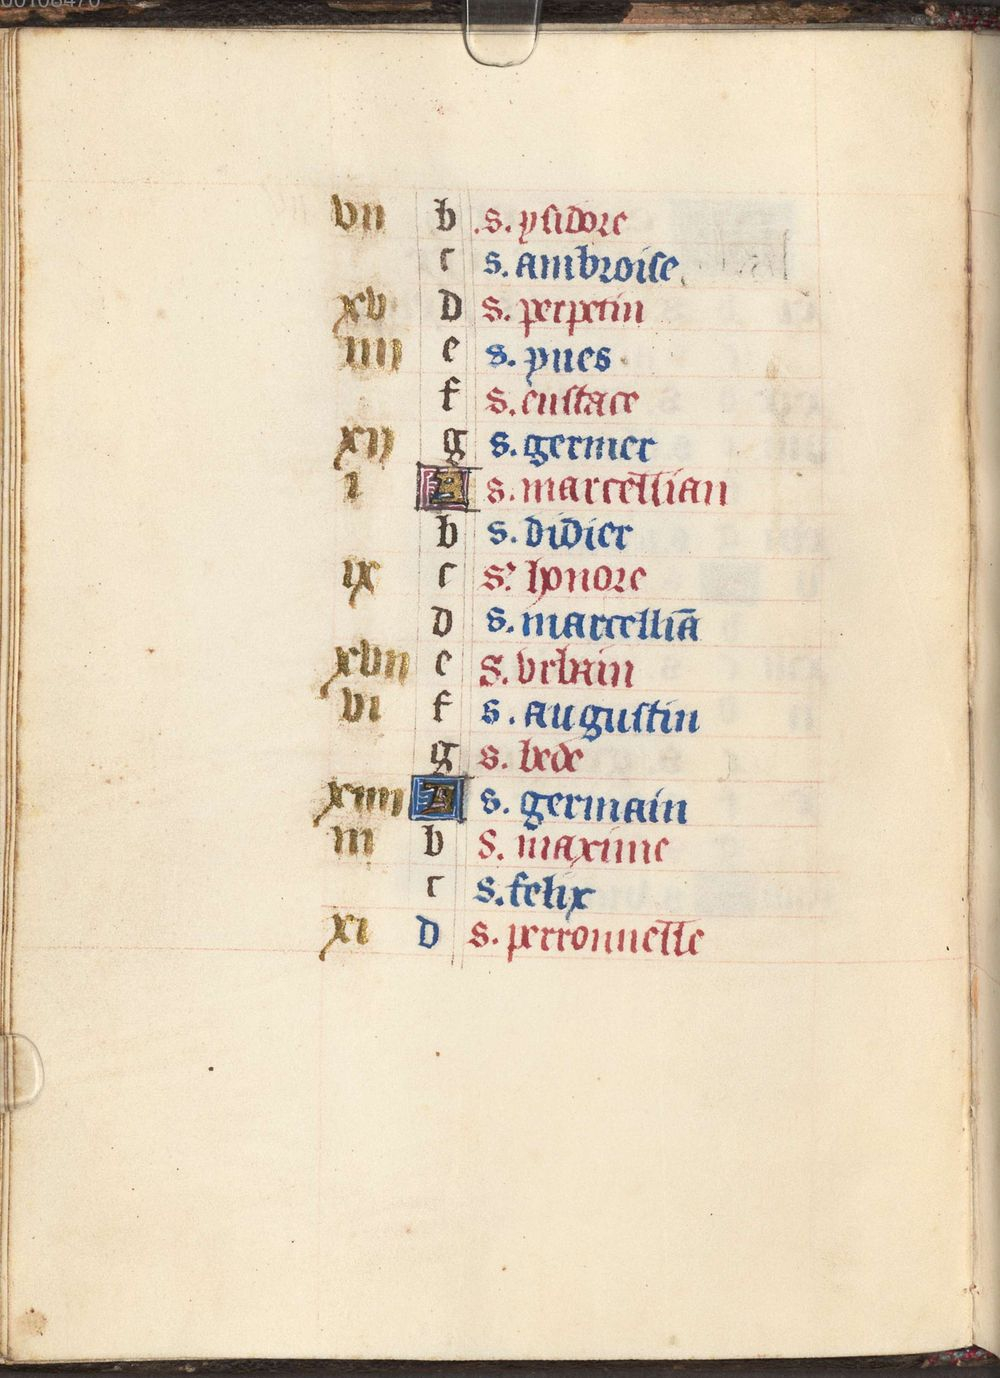 00108470
vii b s. ysidore
c s. ambroise
xv d s. perpetin
iiij e s. yues
f s. eustace
xij g s. germer
i A s. marcellian
b s. didier
ix c s. honore
d s. marcelliã
xvii e s. vrbain
vi f s. augustin
g s. bede
xiiij A s. germain
iii b s. maxime
c s. felix
xi d s. perronnelle